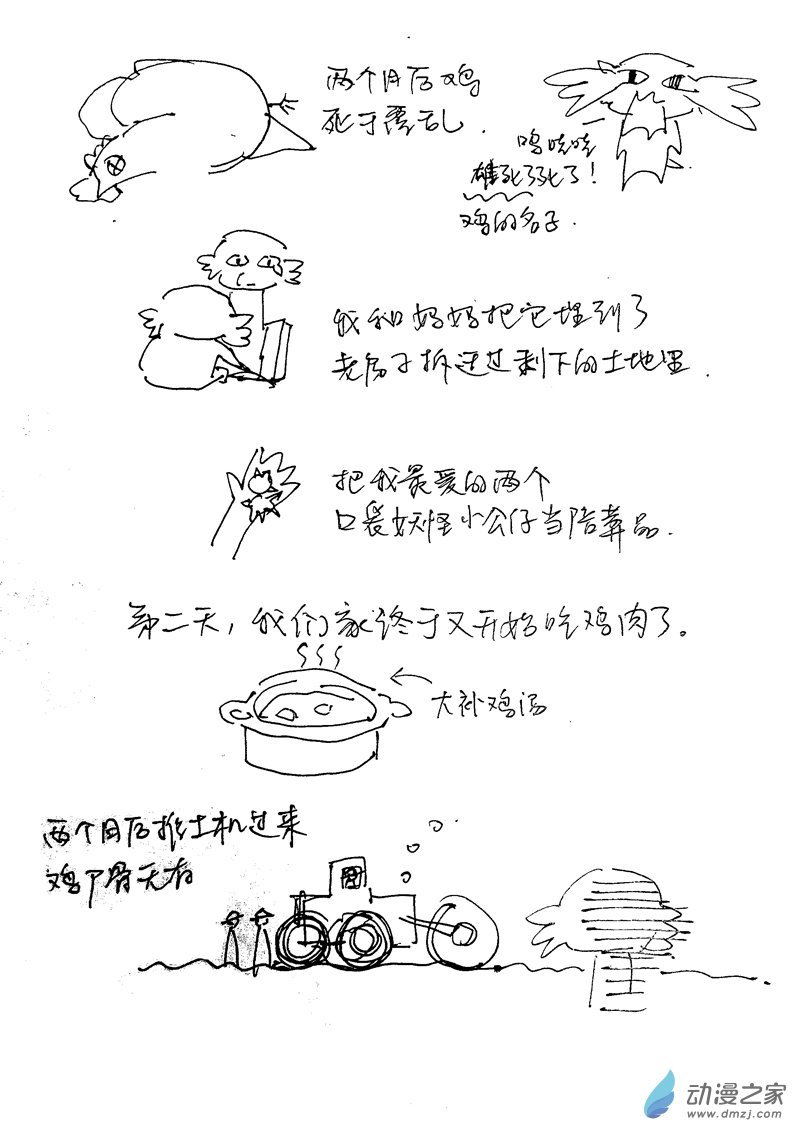 两个月后鸡
死于霍乱.
呜哇哇
雄死了死了!
鸡的名子.
我和妈妈把它埋到了
老房子拆迁过剩下的土地里.
把我最爱的两个
口袋妖怪小公仔当陪葬品.
第二天,我们家终于又开始吃鸡肉了。
大补鸡汤
两个月后推土机过来
鸡尸骨无存
动漫之家
www.dmzj.com